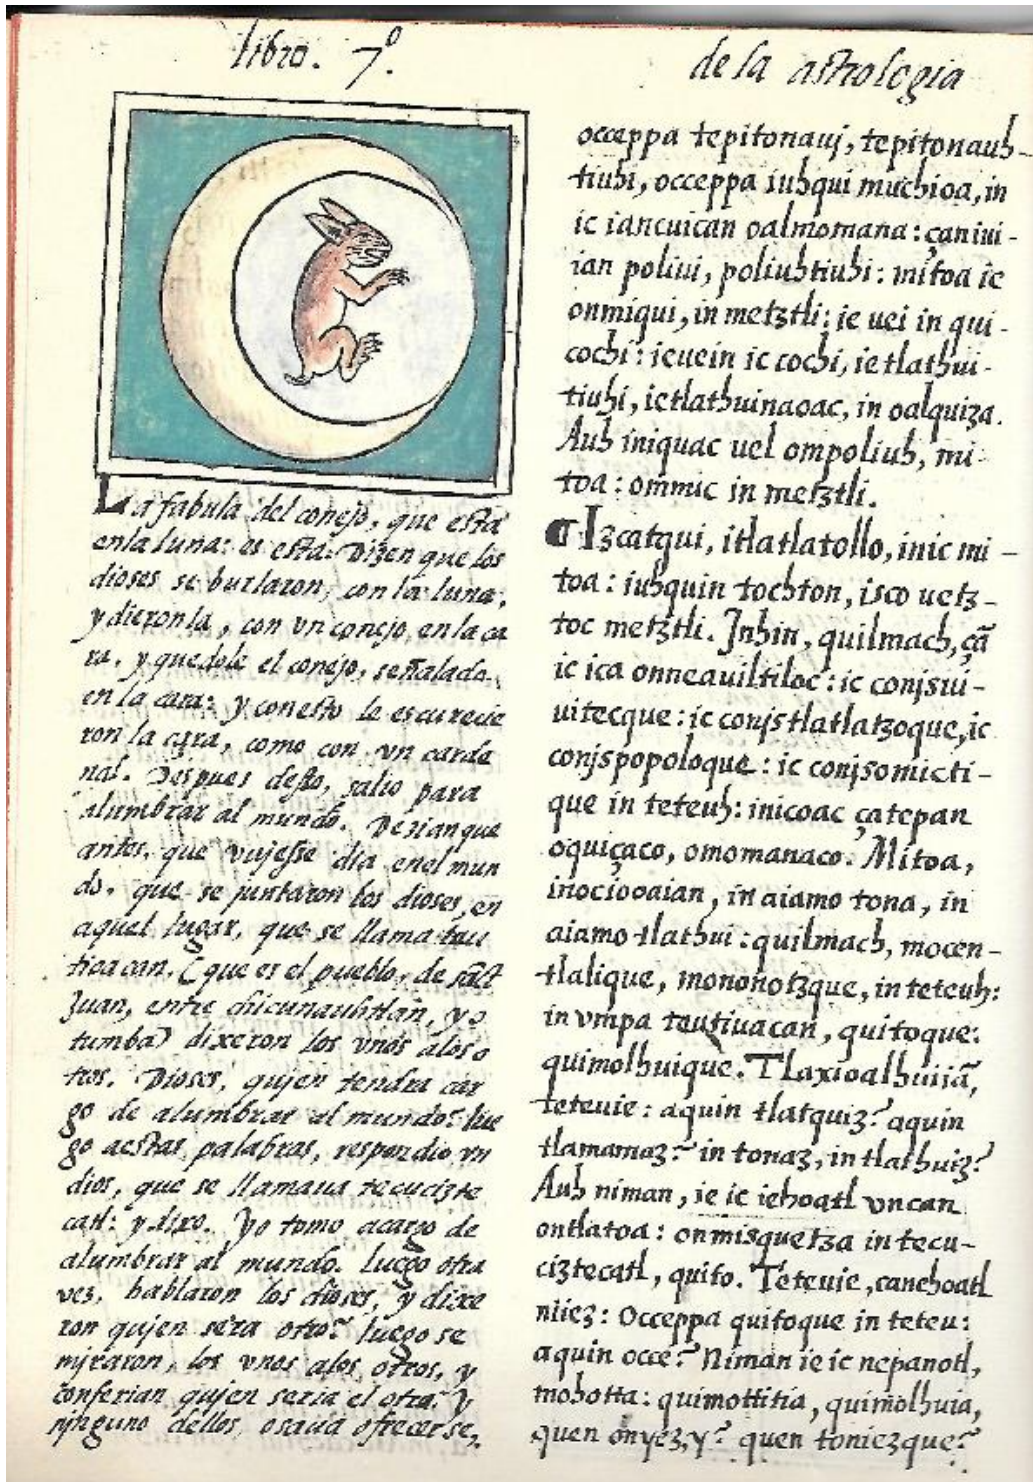 libro. 7º.
de la astrologia
La fabula del conejo, que esta
en la luna: es esta. Dizen que los
dioses se burlaron, con la luna,
y dieronla, con vn conejo, en la ca
ra. y quedole el conejo, señalado
en la cara: y con esto le escurecie
ron la cara, como con vn carde
nal. Despues desto, salio para
alumbrar al mundo. Dezian que
antes, que vujesse dia enel mun
do, que se juntaron los dioses, en
aquel lugar, que se llama teu
tioacan. (que es el pueblo, de sāct
Juan, entre chicunauhtlan, y o
tumba) dixeron los vnos alos o
tros. Dioses, qujen tendra car
go de alumbrar al mundo? lue
go aestas, palabras, respondio vn
dios, que se llamaua tecuciзte
catl: y dixo. Yo tomo acargo de
alumbrar al mundo. luego otra
vez, hablaron los dioses, y dixe
ron qujen sera otro? luego se
mjraron, los vnos alos otros, y
conferian qujen seria el otro? Y
njnguno dellos, osaua ofrecerse,
occeppa tepitonauj, tepitonauh-
tiuhi, occeppa iuhqui muchioa, in
ic iancuican oalmomana: çaniui-
ian poliui, poliuhtiuhi: mitoa ic
onmiqui, in metztli: ie uei in qui-
cochi: ieuein ic cochi, ie tlathui-
tiuhi, ie tlathuinaoac, in oalquiza.
Auh iniquac uel ompoliuh, mi-
toa: ommic in metztli.
¶ Izcatqui, itlatlatollo, inic mi-
toa: iuhquin tochton, isco uetz-
toc metztli. Jnhin, quilmach, çā
ic ica onneauiltiloc: ic conjsiui-
uitecque: ic conjstlatlatzoque, ic
conjspopoloque: ic conjsomicti-
que in teteuh: inicoac çatepan
oquiçaco, omomanaco. Mitoa,
inociooaian, in aiamo tona, in
aiamo tlathui: quilmach, mocen-
tlalique, mononotzque, in teteuh:
in vmpa teutiuacan, quitoque:
quimolhuique. Tlaxioalhuiiā,
teteuie: aquin tlatquiz? aquin
tlamamaz? in tonaz, in tlathuiz?
Auh niman, ie ic iehoatl vncan
ontlatoa: onmisquetza in tecu-
ciztecatl, quito. Teteuie, canehoatl
niiez: Occeppa quitoque in teteu:
aquin occe? Niman ie ic nepanotl,
mohotta: quimottitia, quimolhuia,
quen onyez, y? quen toniezque?